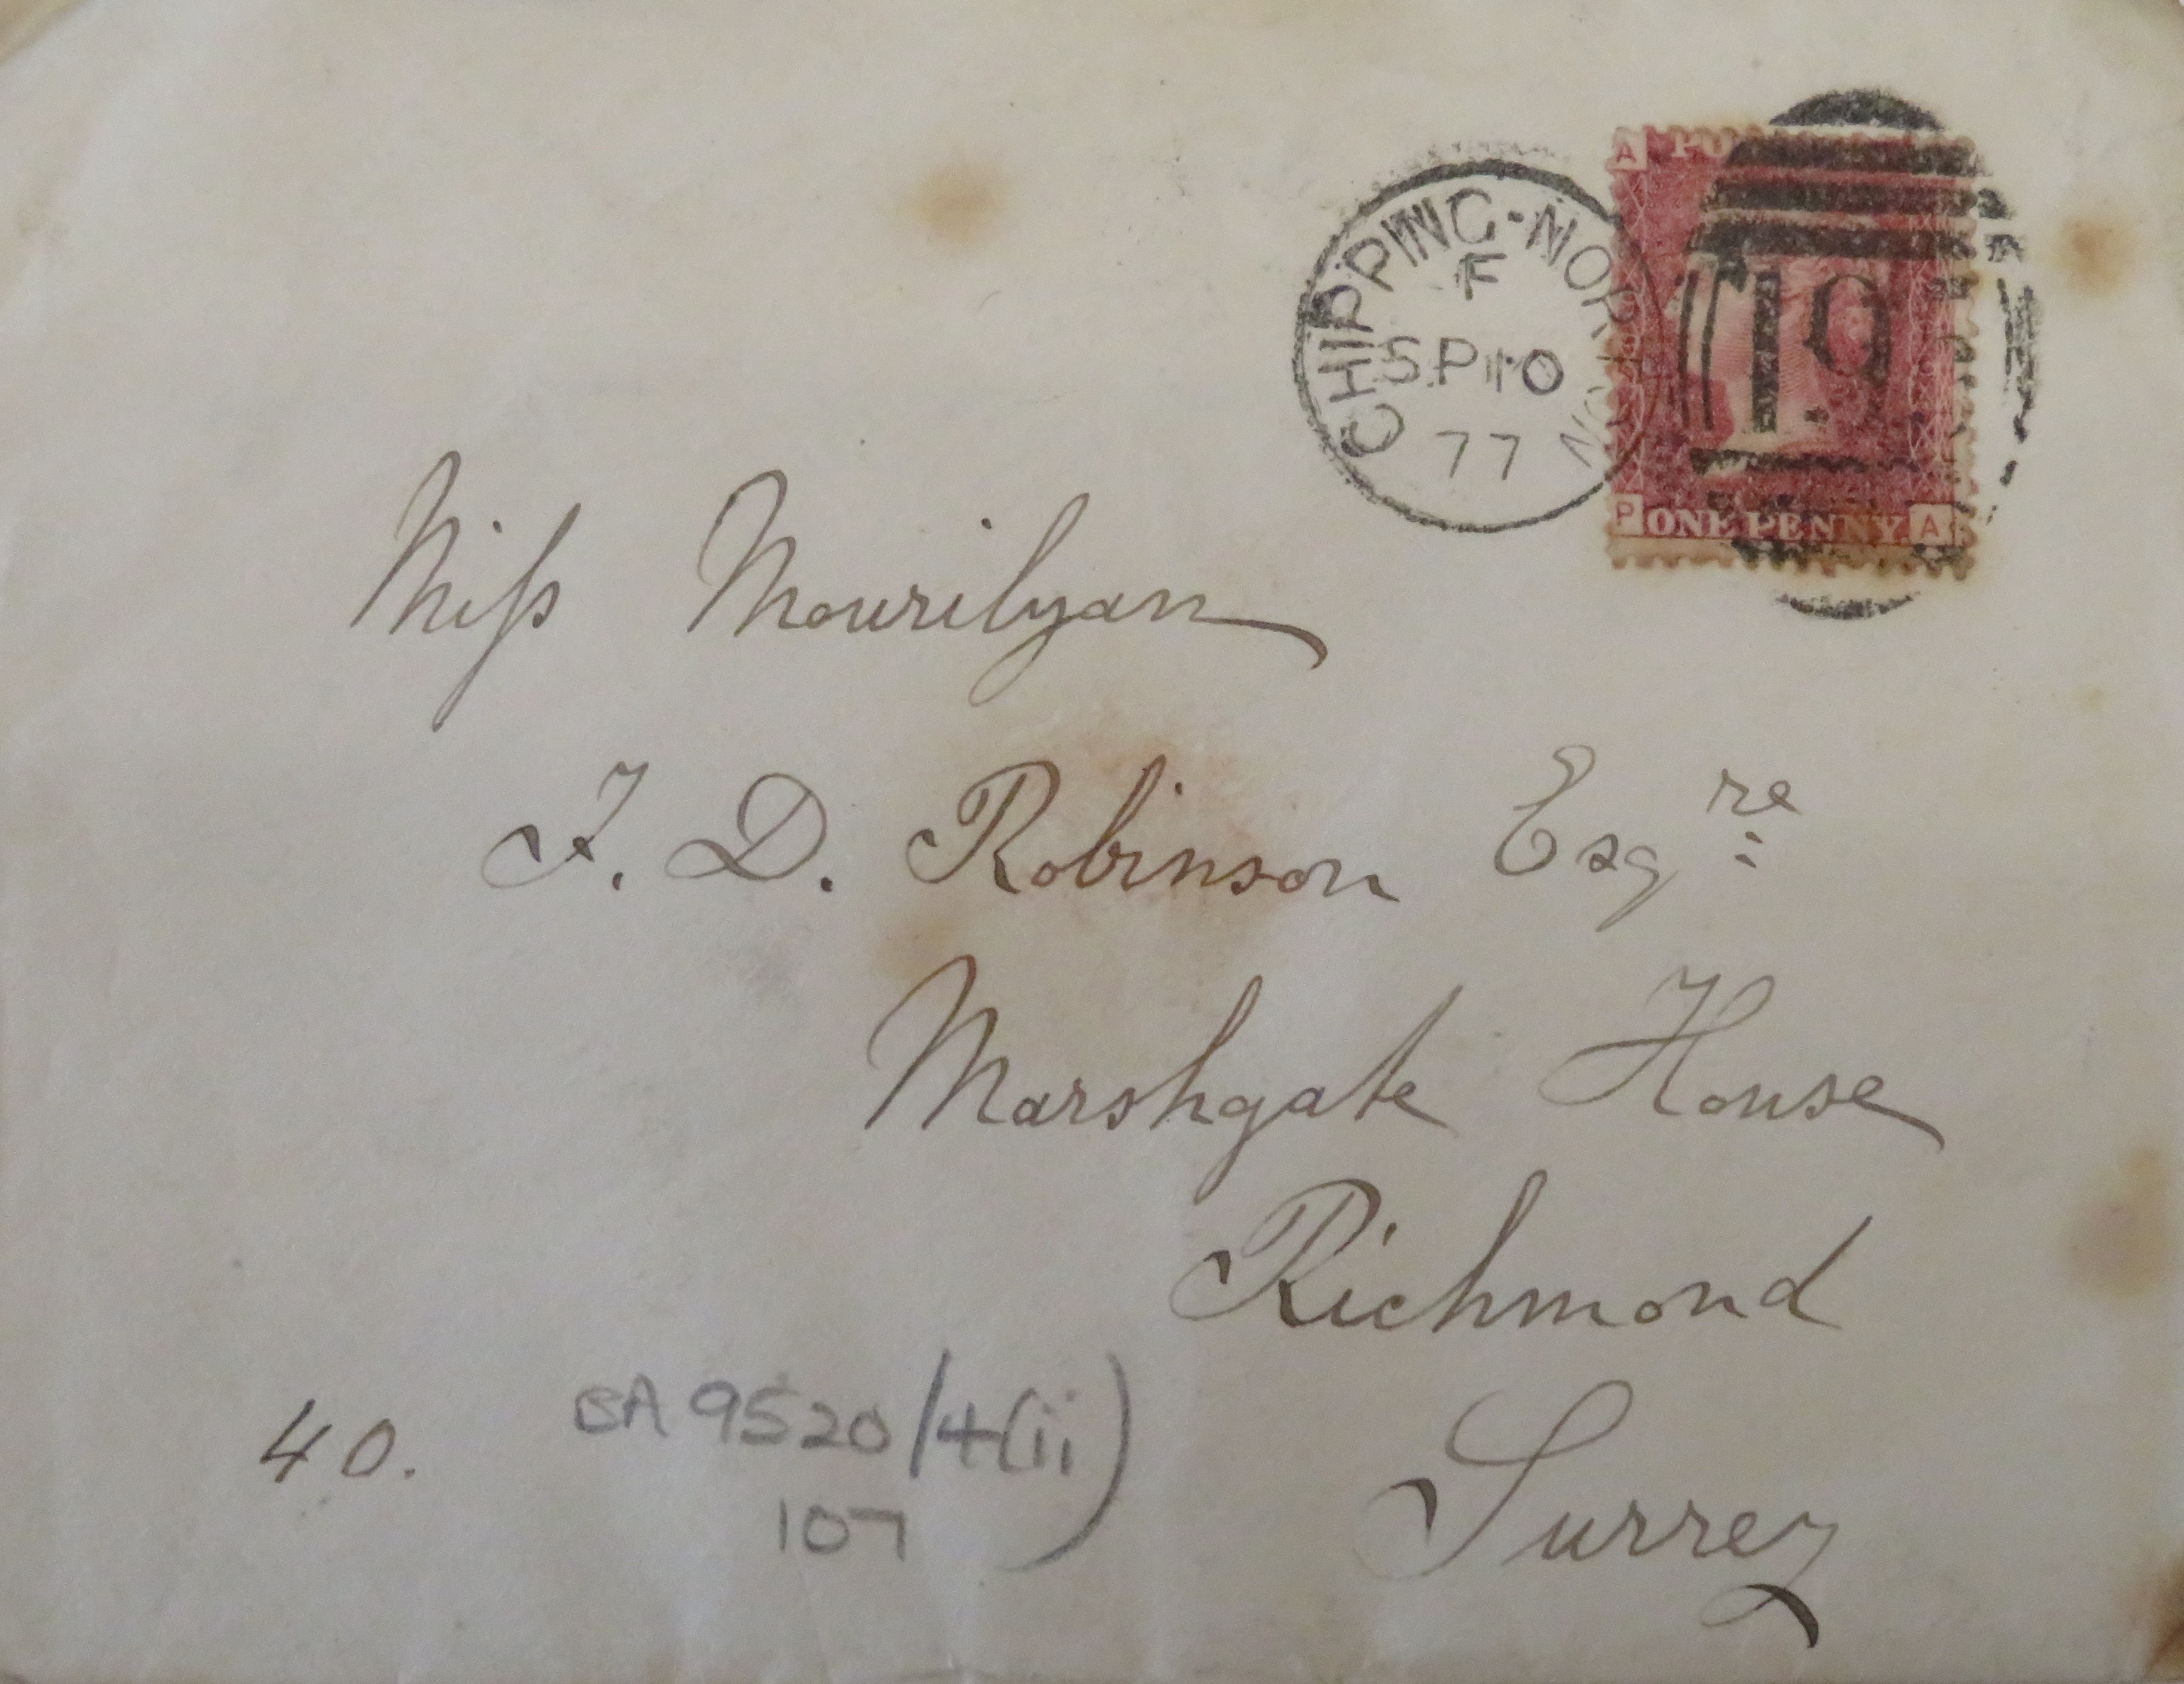 CHIPPING-NORTON
F
SP 10
77
A PO
19
P ONE PENNY A
Miss Mourilyan
J. D. Robinson Esqre
Marshgate House
Richmond
Surrey
40.
BA 9520/4(ii)
107